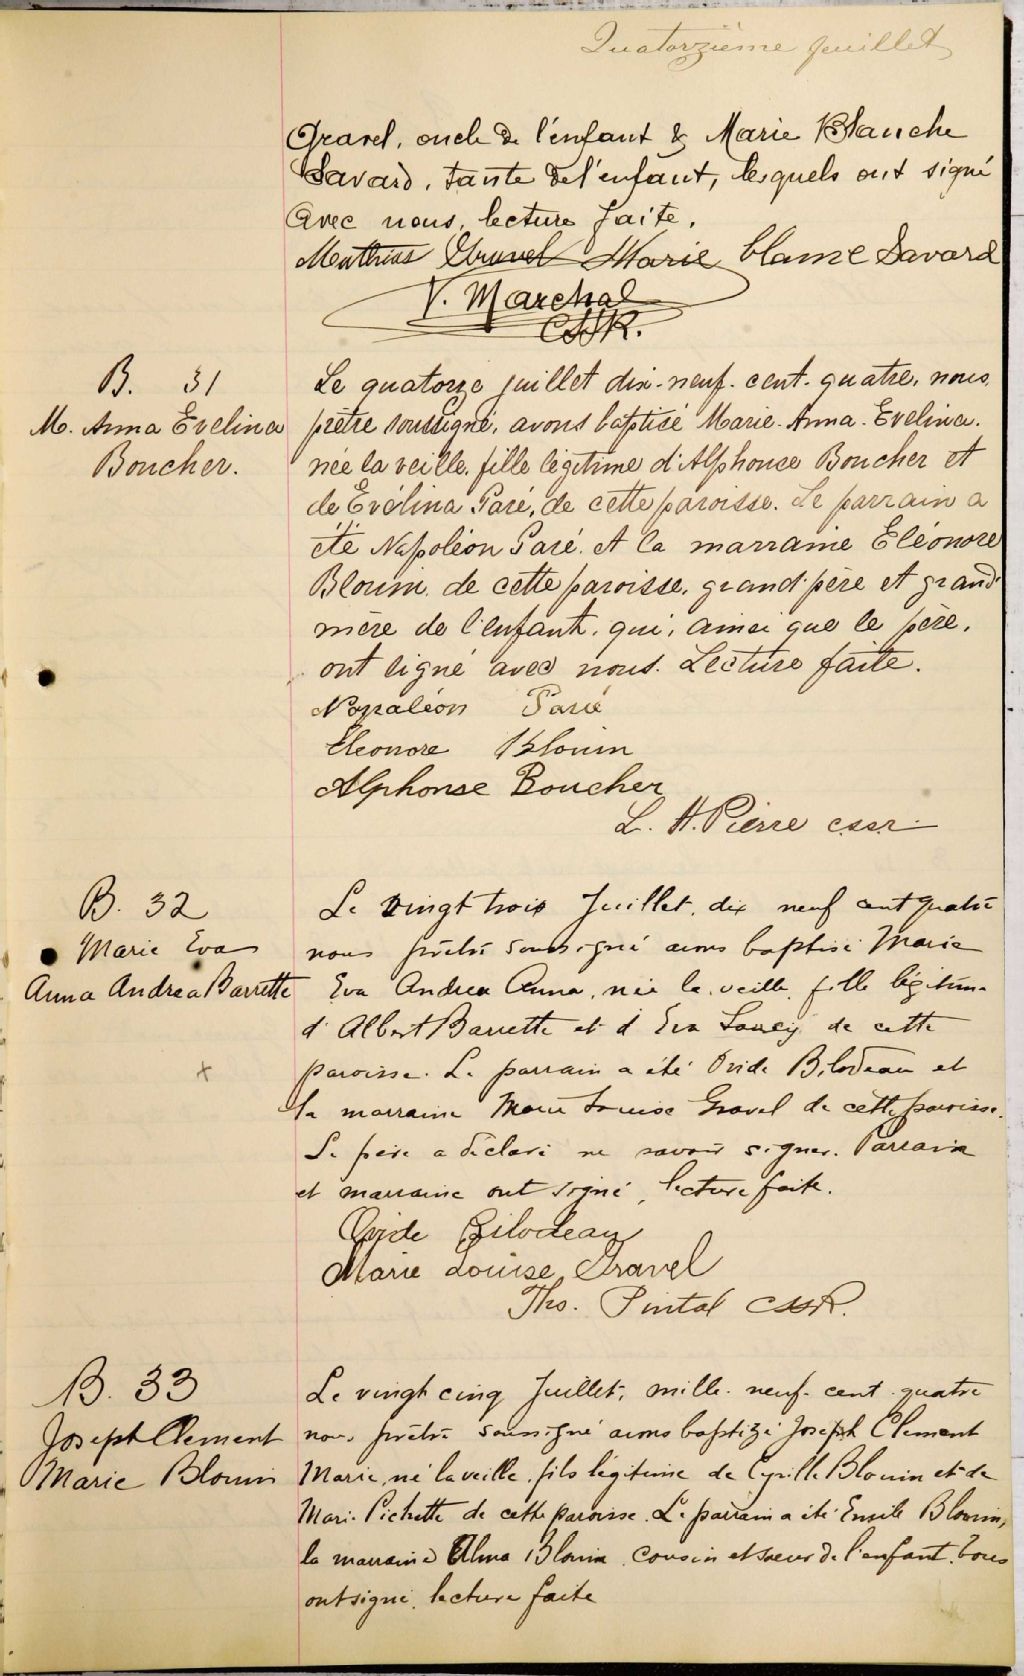 Quatorzième juillet
Gravel, oncle de l'enfant & Marie Blanche
Savard, tante de l'enfant, lesquels ont signé
avec nous, lecture faite.
Mathias Gravel Marie blanche Savard
V. Marchal
CSSR.
B. 31
M. Anna Evelina
Boucher.
Le quatorze juillet dix-neuf-cent-quatre, nous,
prêtre soussigné, avons baptisé Marie-Anna-Evelina.
née la veille, fille légitime d'Alphonse Boucher et
de Evélina Paré, de cette paroisse. Le parrain a
été Napoléon Paré et la marraine Eléonore
Blouin, de cette paroisse, grand'père et grand'
mère de l'enfant, qui, ainsi que le père,
ont signé avec nous. Lecture faite.
Napoléon Paré
Eleonore Blouin
Alphonse Boucher
L. H. Pierre cssr.
B. 32
Marie Eva
Anna Andrea Barrette
Le vingt trois Juillet, dix neuf cent quatre
nous prêtre soussigné avons baptisé Marie
Eva Andrea Anna, née la veille, fille légitime
d'Albert Barrette et d'Eva de cette
paroisse. Le parrain a été Ovide Bilodeau et
la marraine Marie Louise Gravel de cette paroisse.
Le père a déclaré ne savoir signer. Parrain
et marraine ont signé, lecture faite.
Ovide Bilodeau
Marie Louise Gravel
Ths. Pintal CSSR.
B. 33
Joseph Clement
Marie Blouin
Le vingt cinq Juillet, mille-neuf-cent-quatre
nous prêtre soussigné avons baptizé Joseph Clement
Marie, né la veille, fils légitime de Cyrille Blouin et de
Marie Pichette de cette paroisse. Le parrain a été Emile Blouin,
la marraine Alma Blouin, cousin et soeur de l'enfant. Tous
ont signé, lecture faite